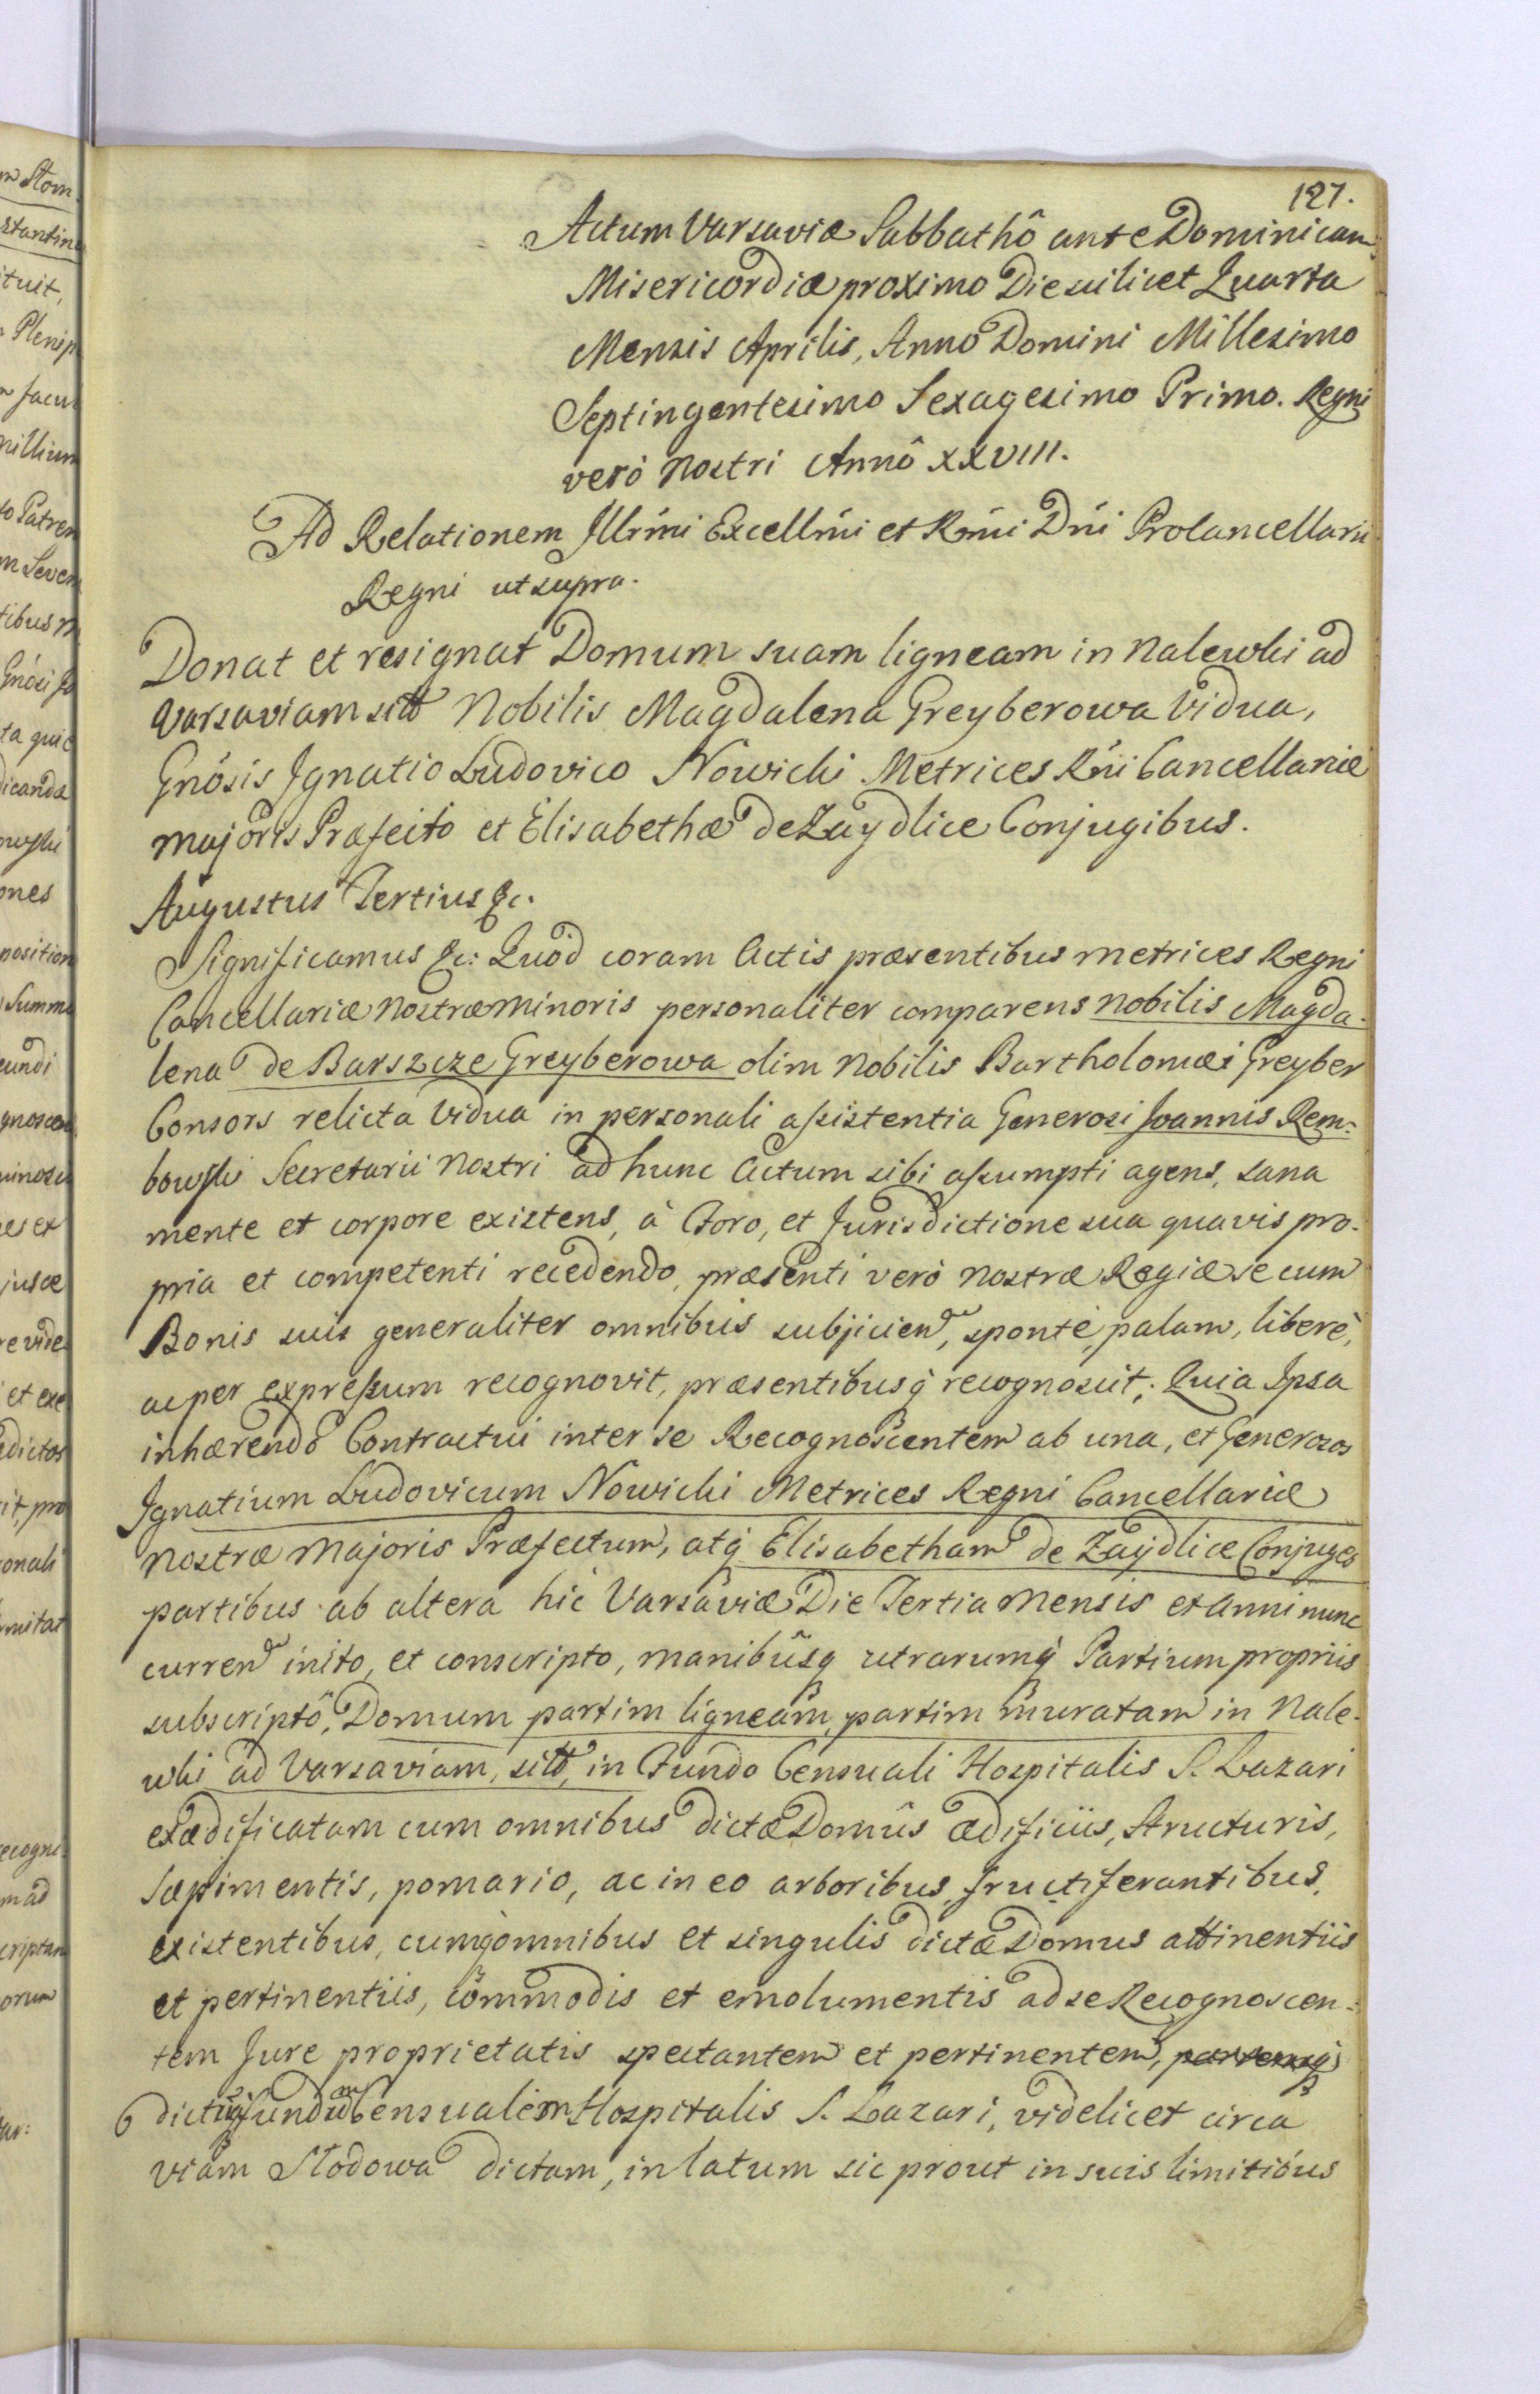 127.
Actum Varsaviæ Sabbathô ante Dominicam
Misericordiæ proximo Die scilicet Quarta
Mensis Aprilis, Anno Domini Millesimo
Septingentesimo Sexagesimo Primo. Regni
verò Nostri Annô XXVIII.
Ad Relationem Illrmi Excellmi et Rmi Dni Procancellarii
Regni ut supra.
Donat et resignat Domum suam ligneam in Nalewki ad
Varsaviam sitt Nobilis Magdalena Greyberowa Vidua,
Gnosis Ignatio Ludovico Nowicki Metrices Rni Cancellariæ
Majoris Præfecto et Elisabethæ de Zaydlice Conjugibus.
Augustus Tertius &c.
Significamus &c: Quòd coram Actis præsentibus Metrices Regni
Cancellariæ Nostræ Minoris personaliter comparens Nobilis Magda-
lena de Barszcze Greyberowa olim Nobilis Bartholomæi Greyber
Consors relicta Vidua in personali assistentia Generosi Joannis Rem-
bowski Secretarii Nostri ad hunc Actum sibi assumpti agens, sana
mente et corpore existens, à Foro, et Jurisdictione sua quavis pro-
pria et competenti recedendo, præsenti verò Nostræ Regiæ se cum
Bonis suis generaliter omnibus subjiciend, spontè, palam, liberè,
ac per expressum recognovit, præsentibusq recognoscit; Quia Ipsa
inhærendo Contractui inter se Recognoscentem ab una, et Generosos
Ignatium Ludovicum Nowicki Metrices Regni Cancellariæ
Nostræ Majoris Præfectum, atq Elisabetham de Zaydlice Conjuges
partibus ab altera hic Varsaviæ Die Tertia Mensis et Anni nunc
curren inito, et conscripto, manibusq utrarumq Partium propriis
subscriptô, Domum partim ligneam, partim muratam in Nale-
wki ad Varsaviam, sitt, in Fundo Censuali Hospitalis S. Lazari
exædificatam cum omnibus dictæ Domûs ædificiis, Structuris,
Sæpimentis, pomario, ac in eo arboribus fructiferantibus,
existentibus, cumq omnibus et singulis dictæ Domus attinentiis
et pertinentiis, commodis et emolumentis ad se Recognoscen-
tem Jure proprietatis spectantem et pertinentem,
dictumq fundum Censualem Hospitalis S. Lazari, videlicet circa
viam Słodowa dictam, in latum sic prout in suis limitibus